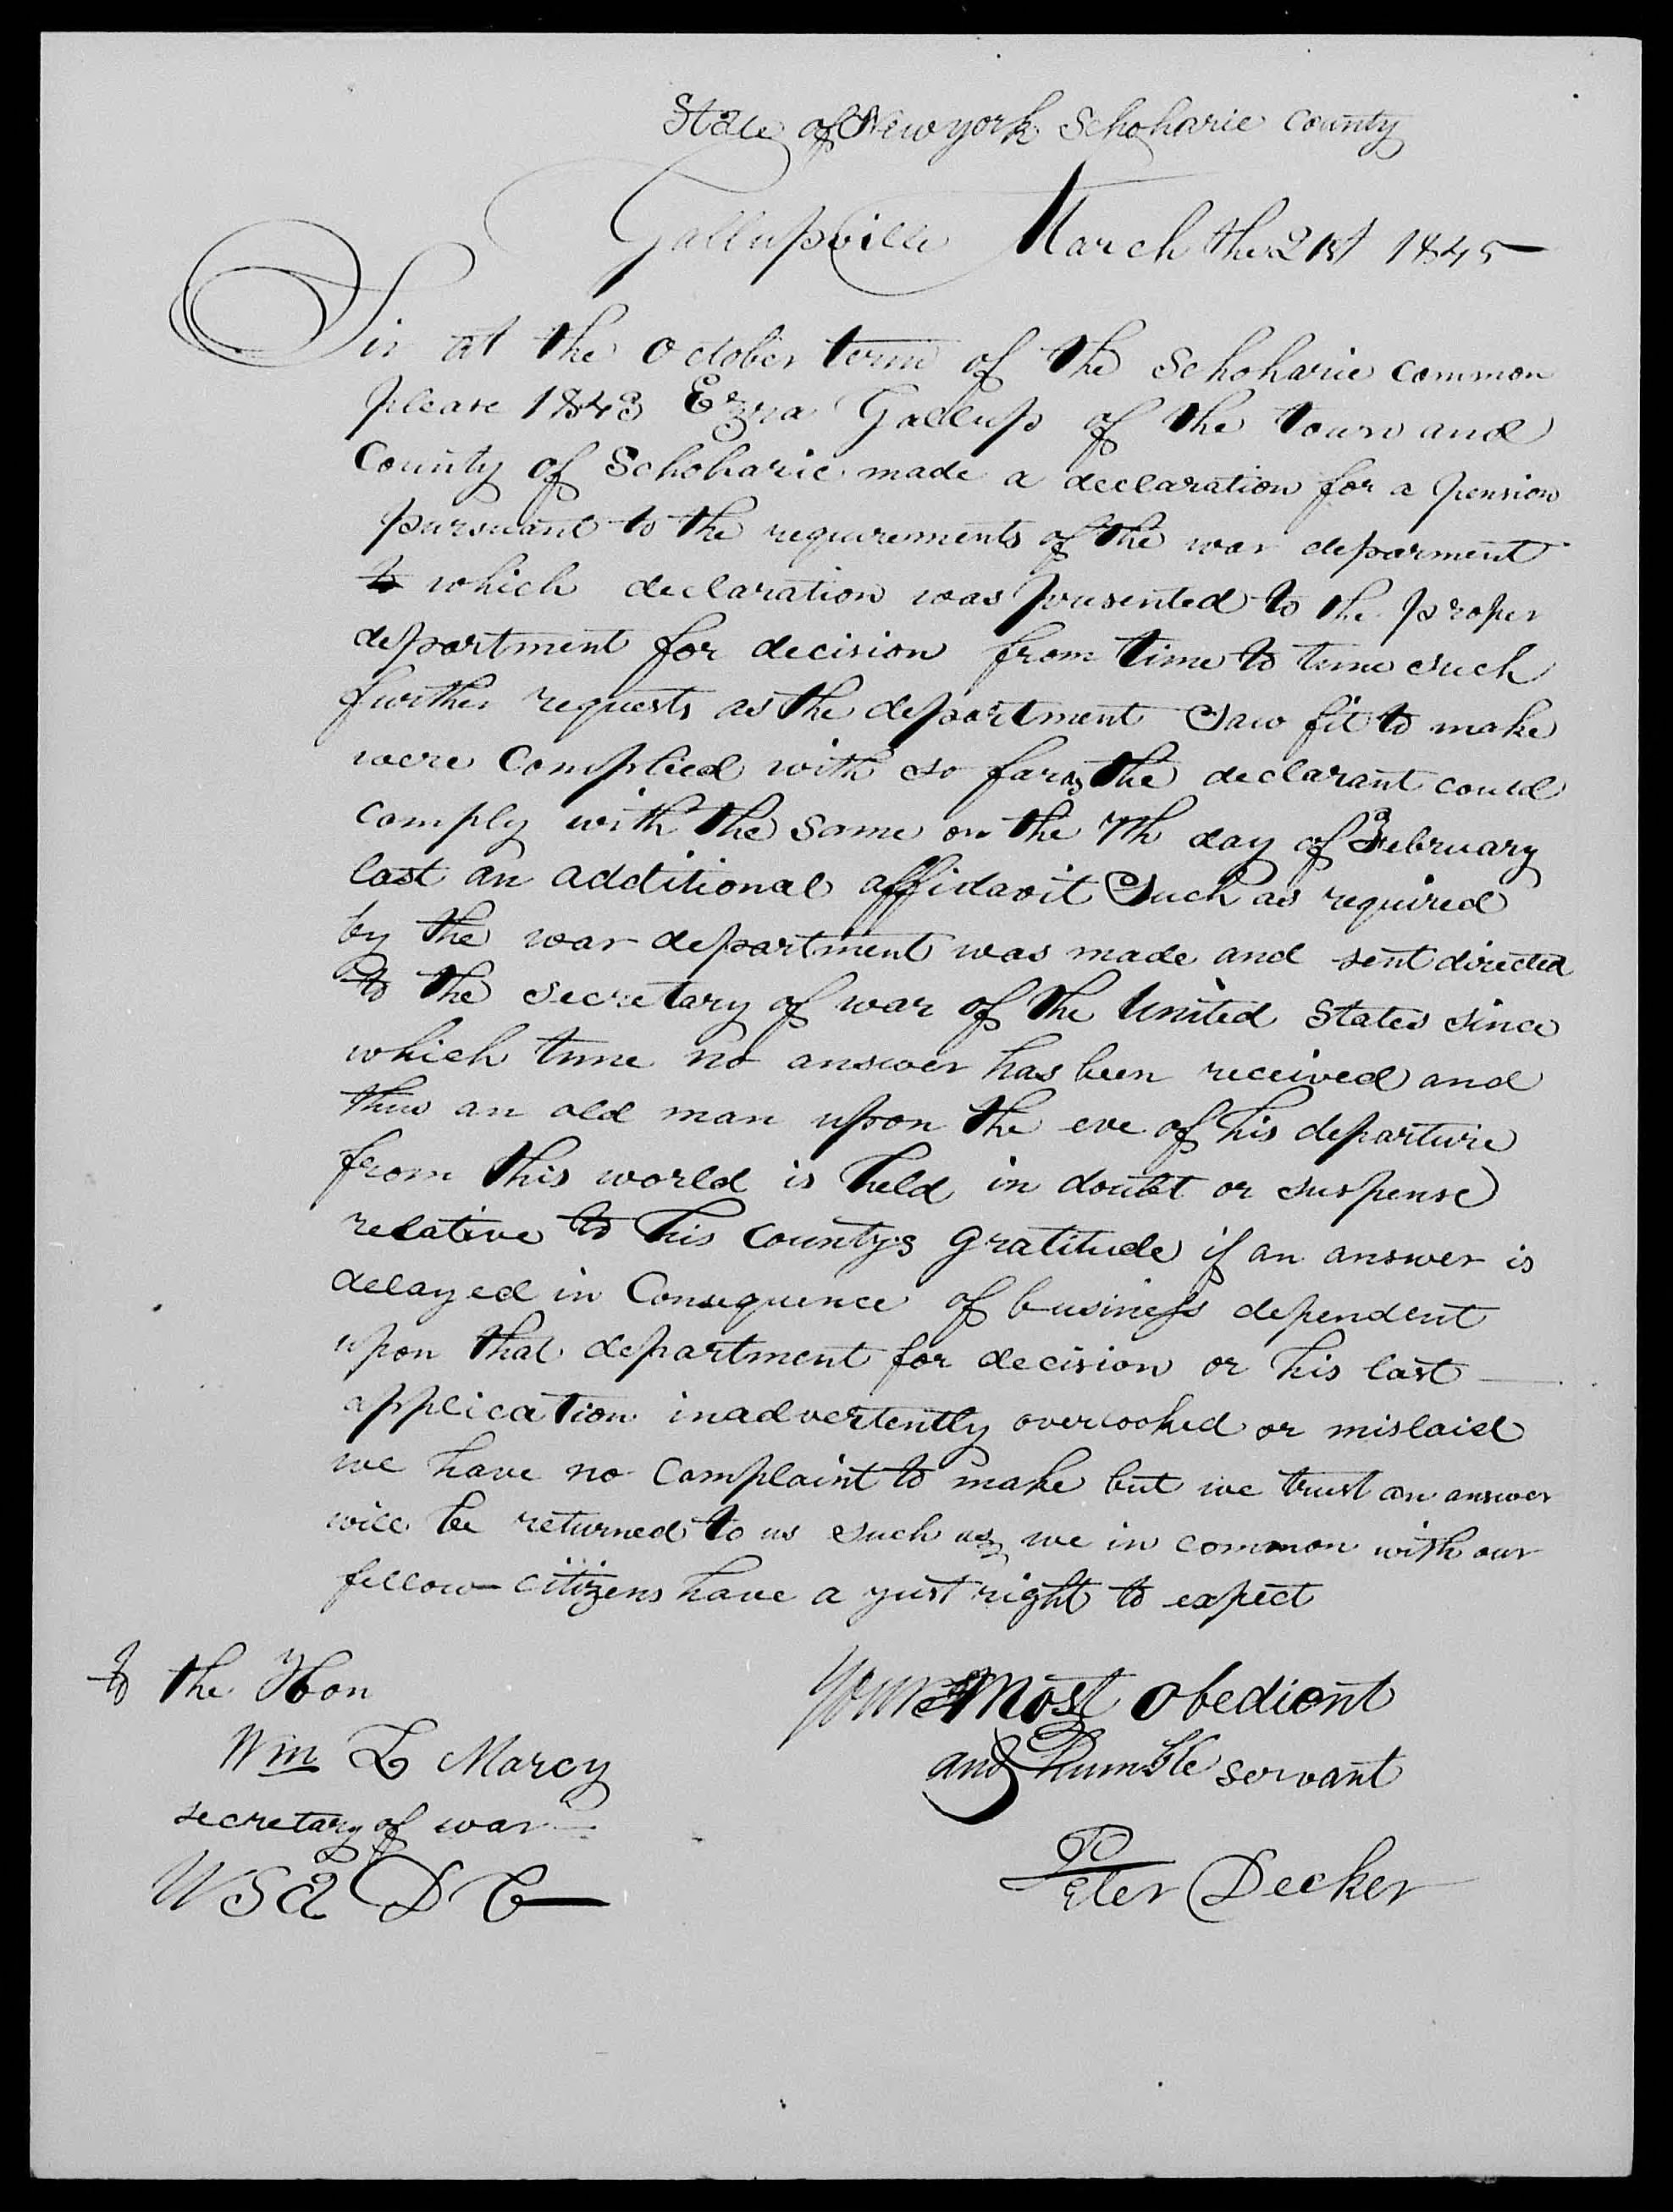 State of New york Schoharie County
Gallupville March the 21st 1845
Sir at the October term of the Schoharie common
please 1843 Ezra Gallup of the town and
County of Schoharie made a declaration for a pension
pursuant to the requirements of the war deparment
to which declaration was presented to the proper
department for decision from time to time such
further requests as the department saw fit to make
were complied with so far as the declarant could
comply with the same on the 7th day of February
last an additional affidavit such as required
by the war department was made and sent directed
to the secretary of war of the United States since
which time no answer has been received and
thus an old man upon the eve of his departure
from this world is held in doubt or suspense
relative to his countys gratitude if an answer is
delayed in Consequence of business dependent
upon that department for decision or his last
application inadvertently overlooked or mislaid
we have no complaint to make but we trust an answer
will be returned to us such as we in common with our
fellow citizens have a just right to expect
To the Hon
Wm L Marcy
secretary of war
W S a D C
Yours Most obedient
and humble servant
Peter Decker